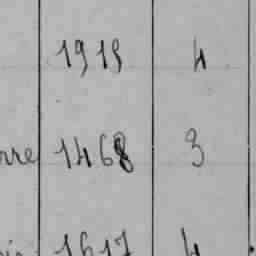 1919 4
rre 1468 3
1617 4